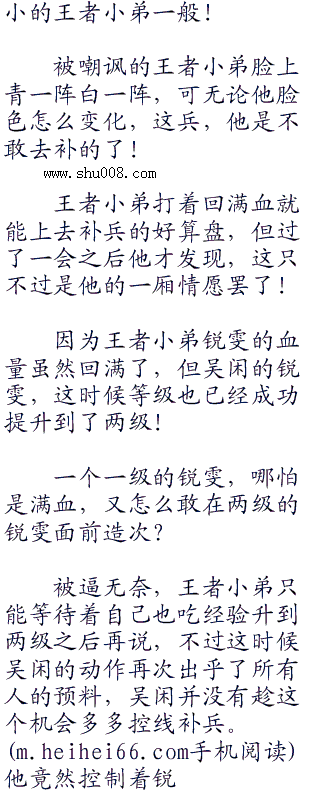 小的王者小弟一般！
被嘲讽的王者小弟脸上
青一阵白一阵，可无论他脸
色怎么变化，这兵，他是不
敢去补的了！
www.shu008.com
王者小弟打着回满血就
能上去补兵的好算盘，但过
了一会之后他才发现，这只
不过是他的一厢情愿罢了！
因为王者小弟锐雯的血
量虽然回满了，但吴闲的锐
雯，这时候等级也已经成功
提升到了两级！
一个一级的锐雯，哪怕
是满血，又怎么敢在两级的
锐雯面前造次？
被逼无奈，王者小弟只
能等待着自己也吃经验升到
两级之后再说，不过这时候
吴闲的动作再次出乎了所有
人的预料，吴闲并没有趁这
个机会多多控线补兵。
(m.heihei66.com手机阅读)
他竟然控制着锐